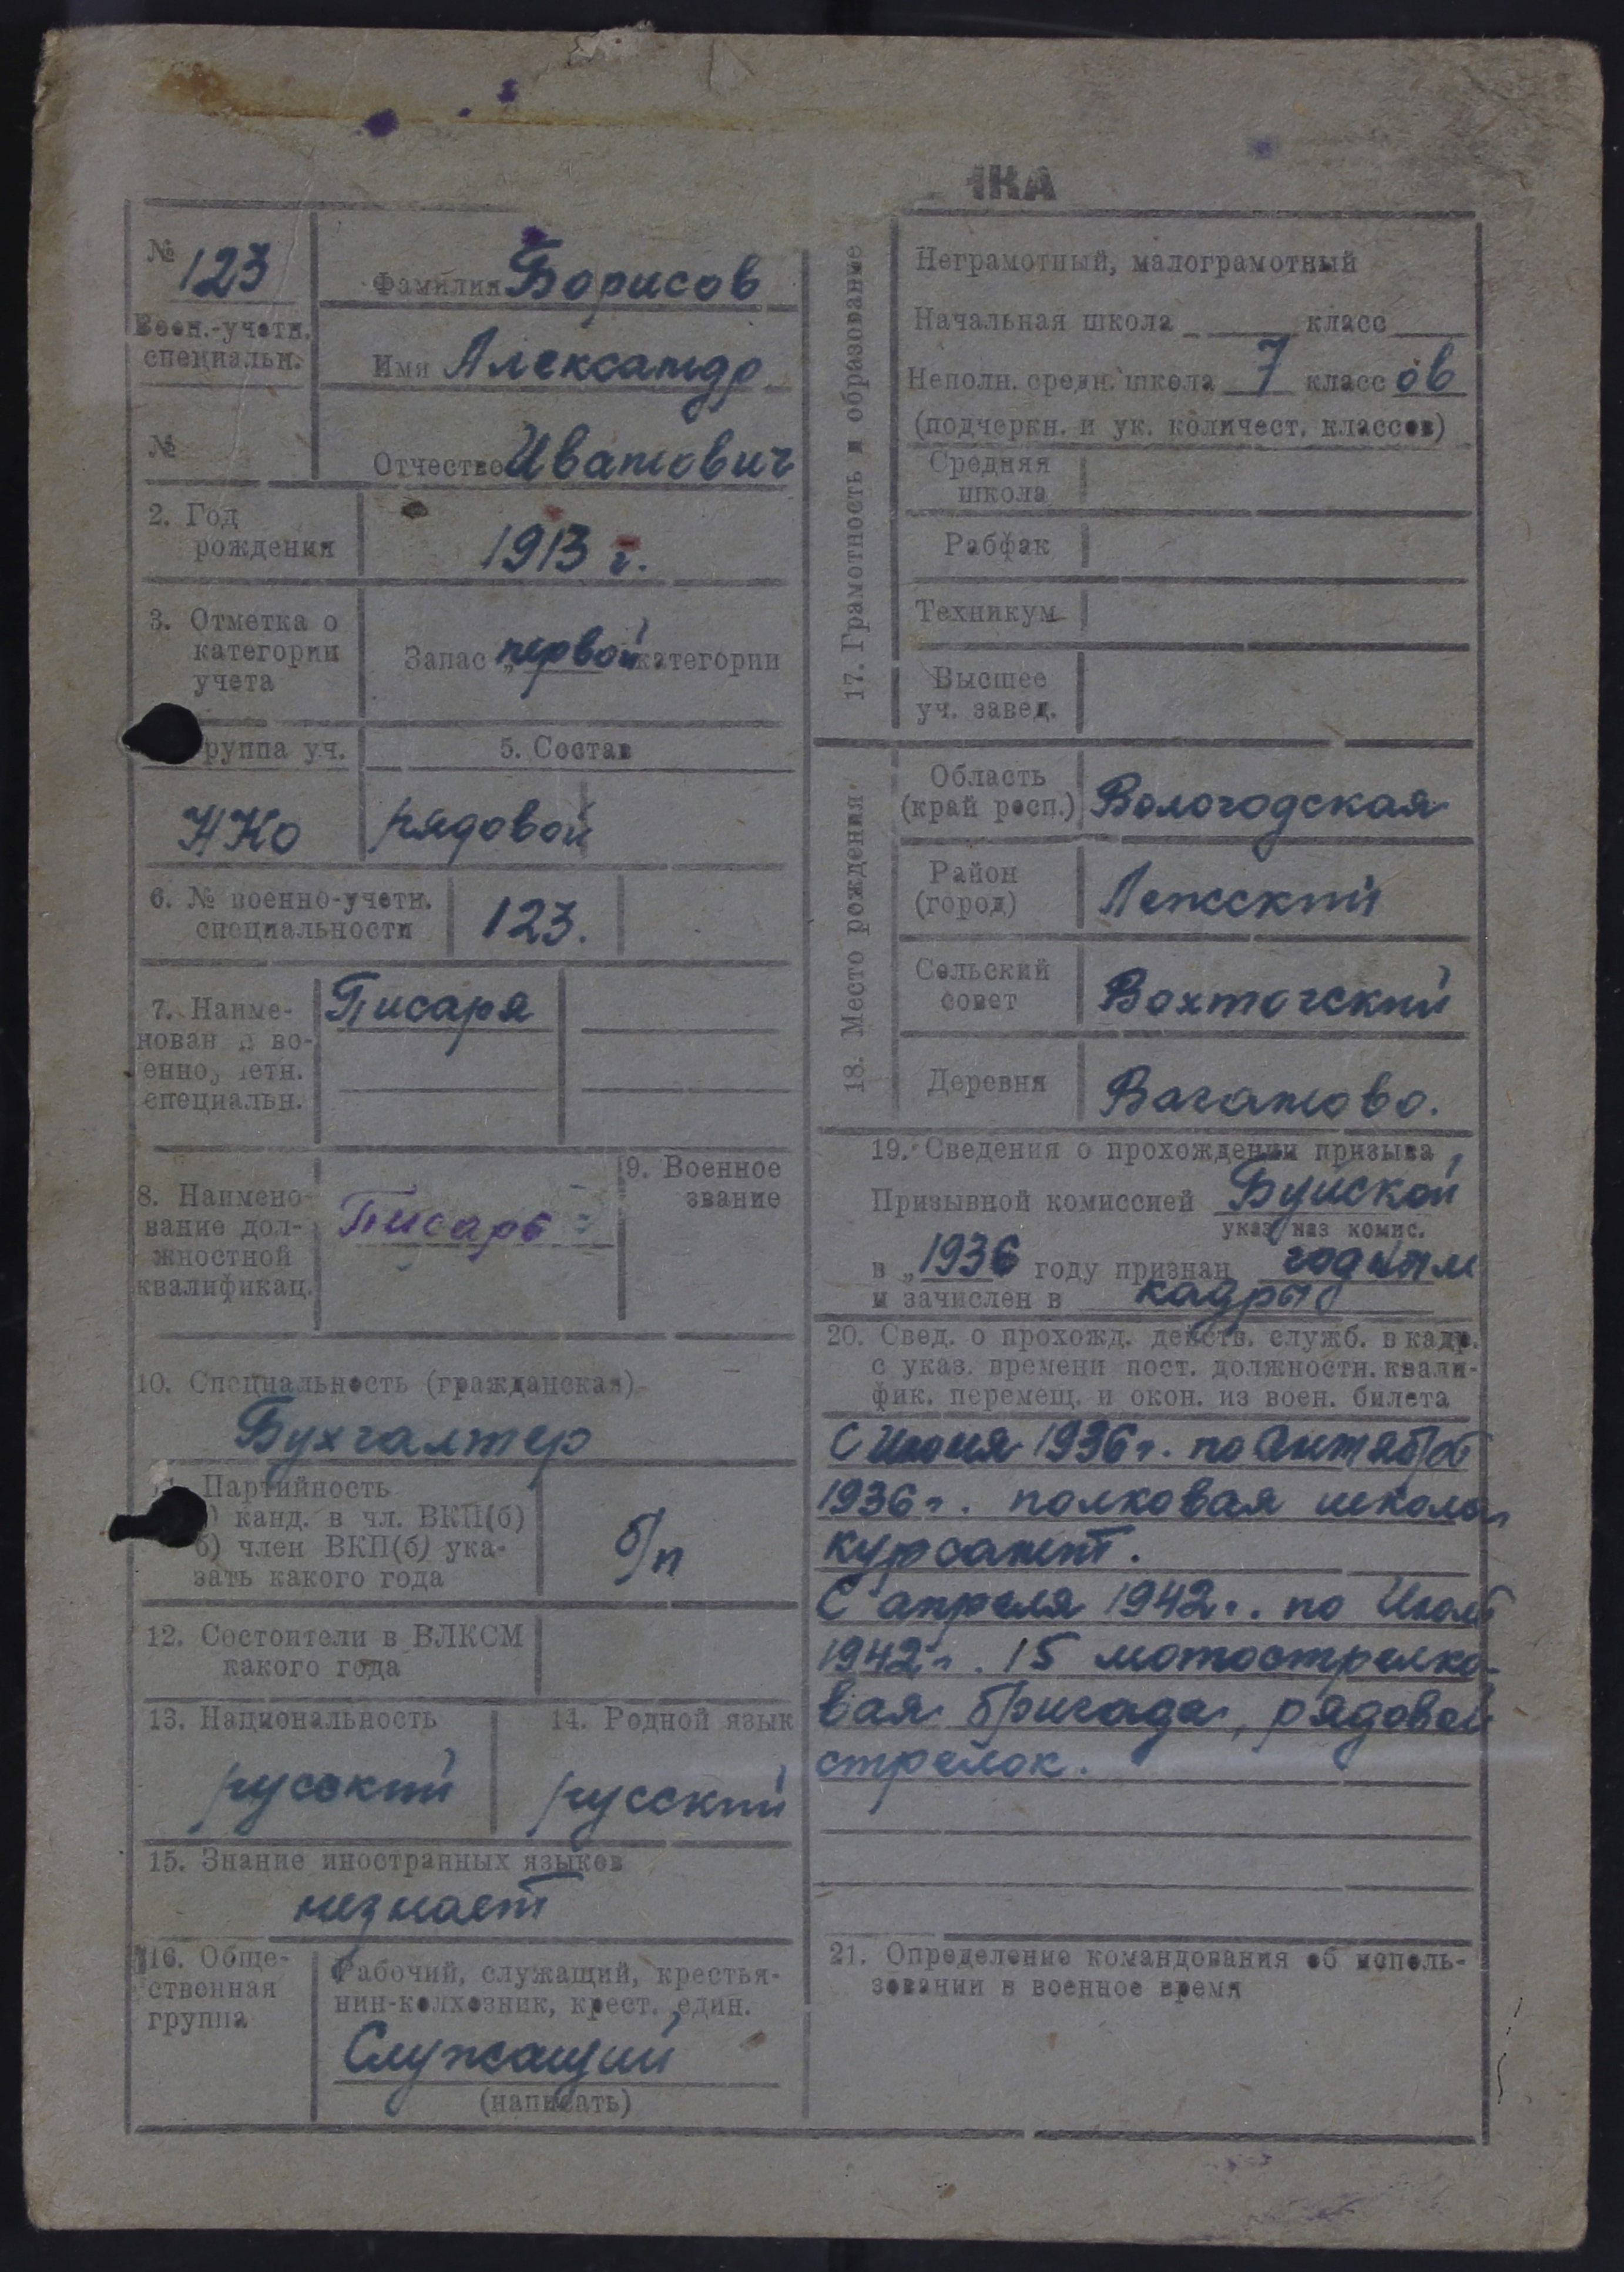 НКА
№ 123
Воен.-учетн.
специальн.
№
Фамилия Борисов
Имя Александр
Отчество Иванович
2. Год
рождения
1913 г.
3. Отметка о
категории
учета
Запас „первой категории
руппа уч.
НКО
5. Состав
рядовой
6. № военно-учетн.
специальности
123.
7. Наиме-
нован и во-
енно, четн.
специальн.
Писаря
8. Наимено-
вание дол-
жностной
квалификац.
Писарь
9. Военное
звание
10. Специальность (гражданская)
Бухгалтер
Партийность
) канд. в чл. ВКП(б)
б) член ВКП(б) ука-
зать какого года
б/п
12. Состоит ели в ВЛКСМ
какого года
13. Национальность
русский
14. Родной язык
русский
15. Знание иностранных языков
незнает
16. Обще-
ственная
группа
Рабочий, служащий, крестья-
нин-колхозник, крест. един.
Служащий
(написать)
17. Грамотность и образование
Неграмотный, малограмотный
Начальная школа класс
Неполн. средн. школа 7 класс ов
(подчеркн. и ук. количест. классов)
Средняя
школа
Рабфак
Техникум
Высшее
уч. завед.
18. Место рождения
Область
(край респ.)
Вологодская
Район
(город)
Лежский
Сельский
совет
Вохтогский
Деревня
Ваганово.
19. Сведения о прохождении призыва
Призывной комиссией Буйской
указ наз комис.
в „1936 году признан годным
и зачислен в кадры
20. Свед. о прохожд. действ. служб. в кадр.
с указ. времени пост. должностн. квали-
фик. перемещ. и окон. из воен. билета
С Июня 1936 г. по Октябрь
1936 г. полковая школа
курсант.
С апреля 1942 г. по Июль
1942 г. 15 мотострелко-
вая бригада, рядовой
стрелок.
21. Определение командования об исполь-
зовании в военное время